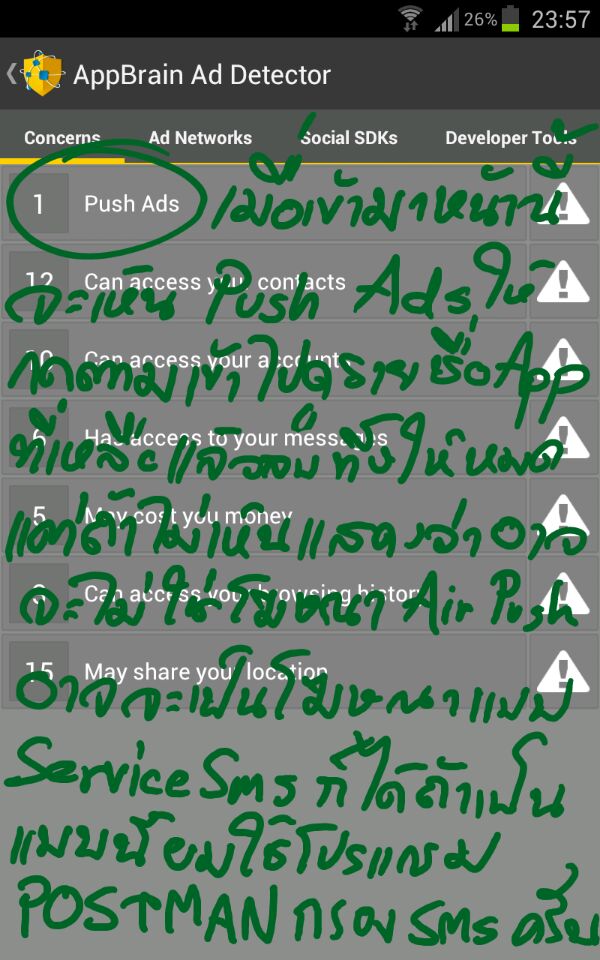 26% 23:57
AppBrain Ad Detector
Concerns Ad Networks Social SDKs Developer Tools
1 Push Ads
เมื่อเข้ามาหน้านี้
12 Can access your contacts
จะเห็น Push Ads ให้
10 Can access your accounts
กดตามเข้าไปดูรายชื่อ App
6 Has access to your messages
แล้วลบทิ้งให้หมด
5 May cost you money
แต่ถ้าไม่เห็นแสดงว่าอาจ
Can access your browsing history
จะไม่ใช่โฆษณา Air Push
15 May share your location
อาจจะเป็นโฆษณาแบบ
Service Sms ก็ได้ถ้าเป็น
แบบนี้ ผมใช้โปรแกรม
POSTMAN กรอง SMS ครับ